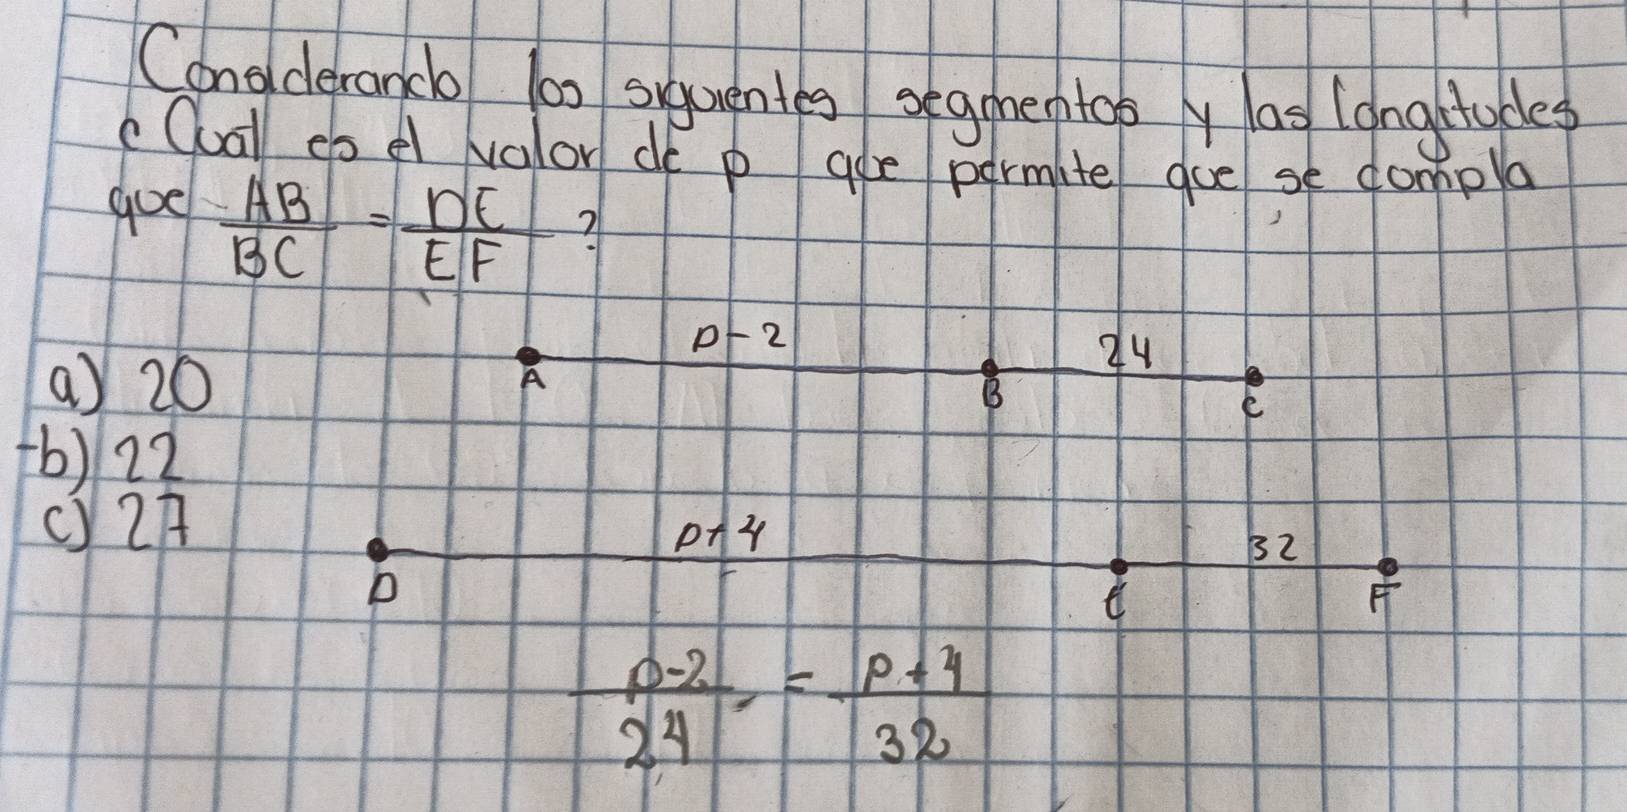 Considerando los siguientes segmentos y las longitudes
¿Cual es el valor de p que permite que se compla
que AB/BC = DE/EF ?
p-2 24
a) 20 A B C
b) 22
c) 27
p+4 32
D E F
p-2/24 = p+4/32